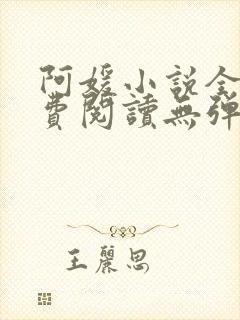 阿媛小說全
費閱讀無彈
王麗思